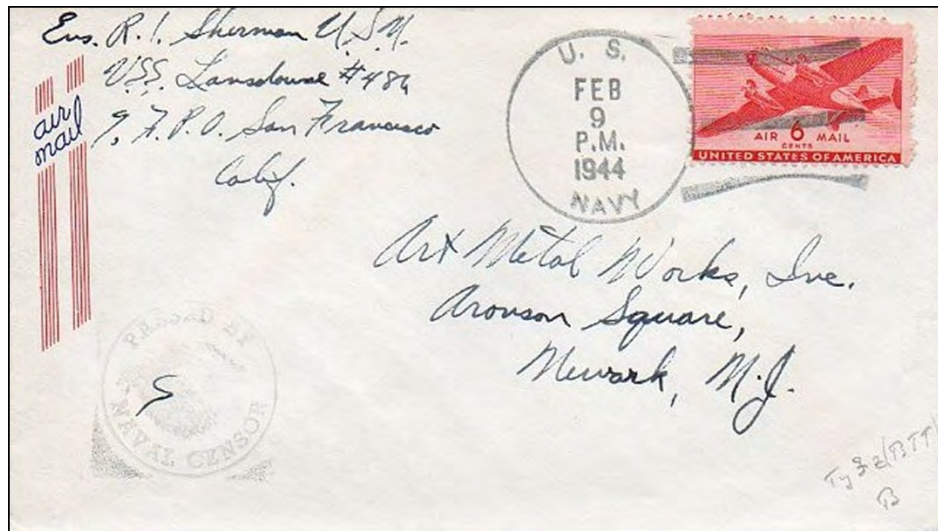 Ens. R. I. Sherman U.S.N.
USS. Lansdowne #486
F.P.O. San Francisco
Calif.
air
mail
U. S.
FEB
9
P.M.
1944
NAVY
AIR 6 MAIL
CENTS
UNITED STATES OF AMERICA
Art Metal Works, Inc.
Aronson Square,
Newark, N.J.
PASSED BY
NAVAL CENSOR
B